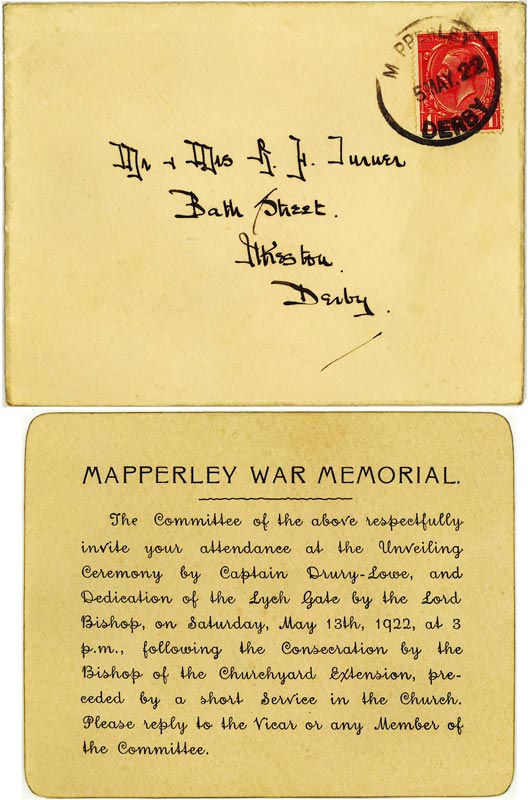 MAPPERLEY
5 MAY. 22
DERBY
Mr & Mrs G. F. Turner
Bath Street.
Ilkeston.
Derby.
MAPPERLEY WAR MEMORIAL.
The Committee of the above respectfully
invite your attendance at the Unveiling
Ceremony by Captain Drury-Lowe, and
Dedication of the Lych Gate by the Lord
Bishop, on Saturday, May 13th, 1922, at 3
p.m., following the Consecration by the
Bishop of the Churchyard Extension, pre-
ceded by a short Service in the Church.
Please reply to the Vicar or any Member of
the Committee.